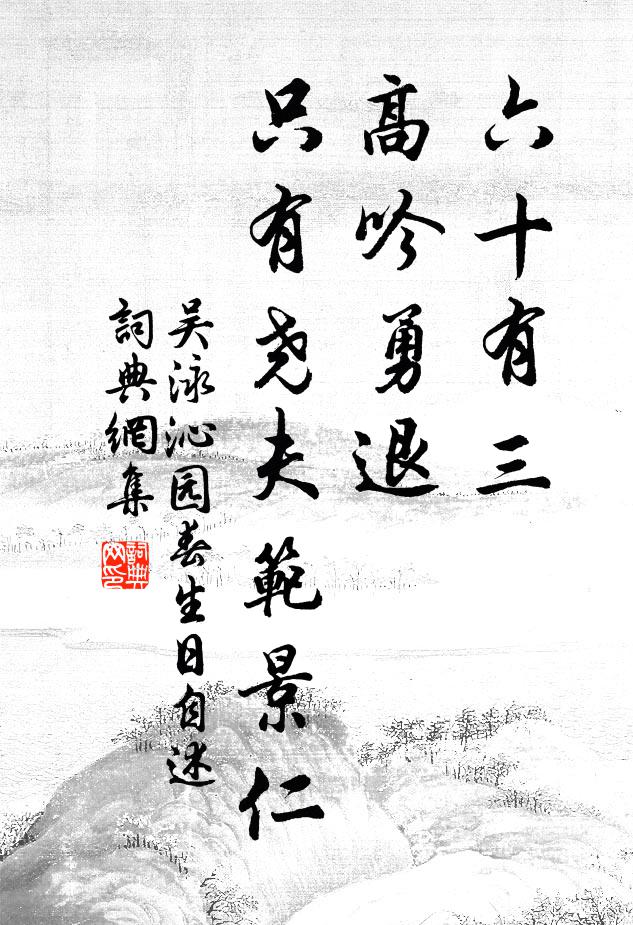 六十有三
高吟勇退
只有尧夫範景仁
吴泳沁园春生日自述
詞典網集
詞典网印